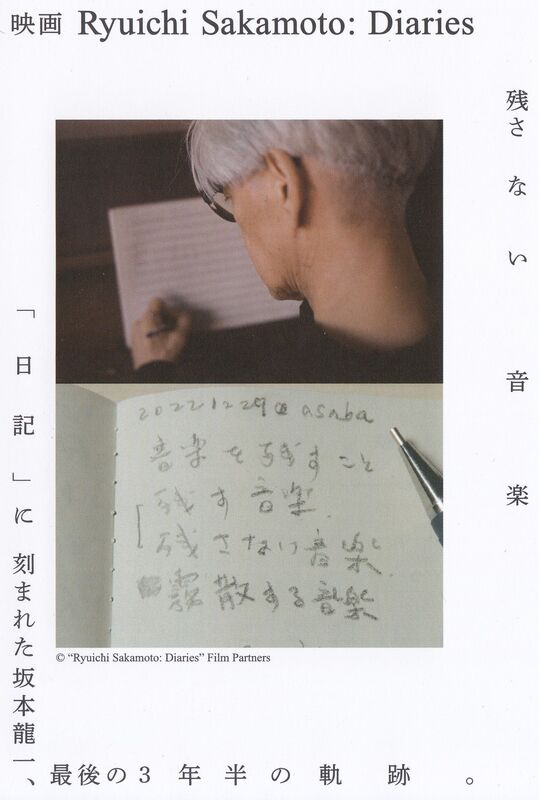 映画 Ryuichi Sakamoto: Diaries
残さない音楽
20221229@asaba
音楽を残すこと
残す音楽
残さない音楽
霧散する音楽
© “Ryuichi Sakamoto: Diaries” Film Partners
「日記」に刻まれた坂本龍一、
最後の3年半の軌跡。